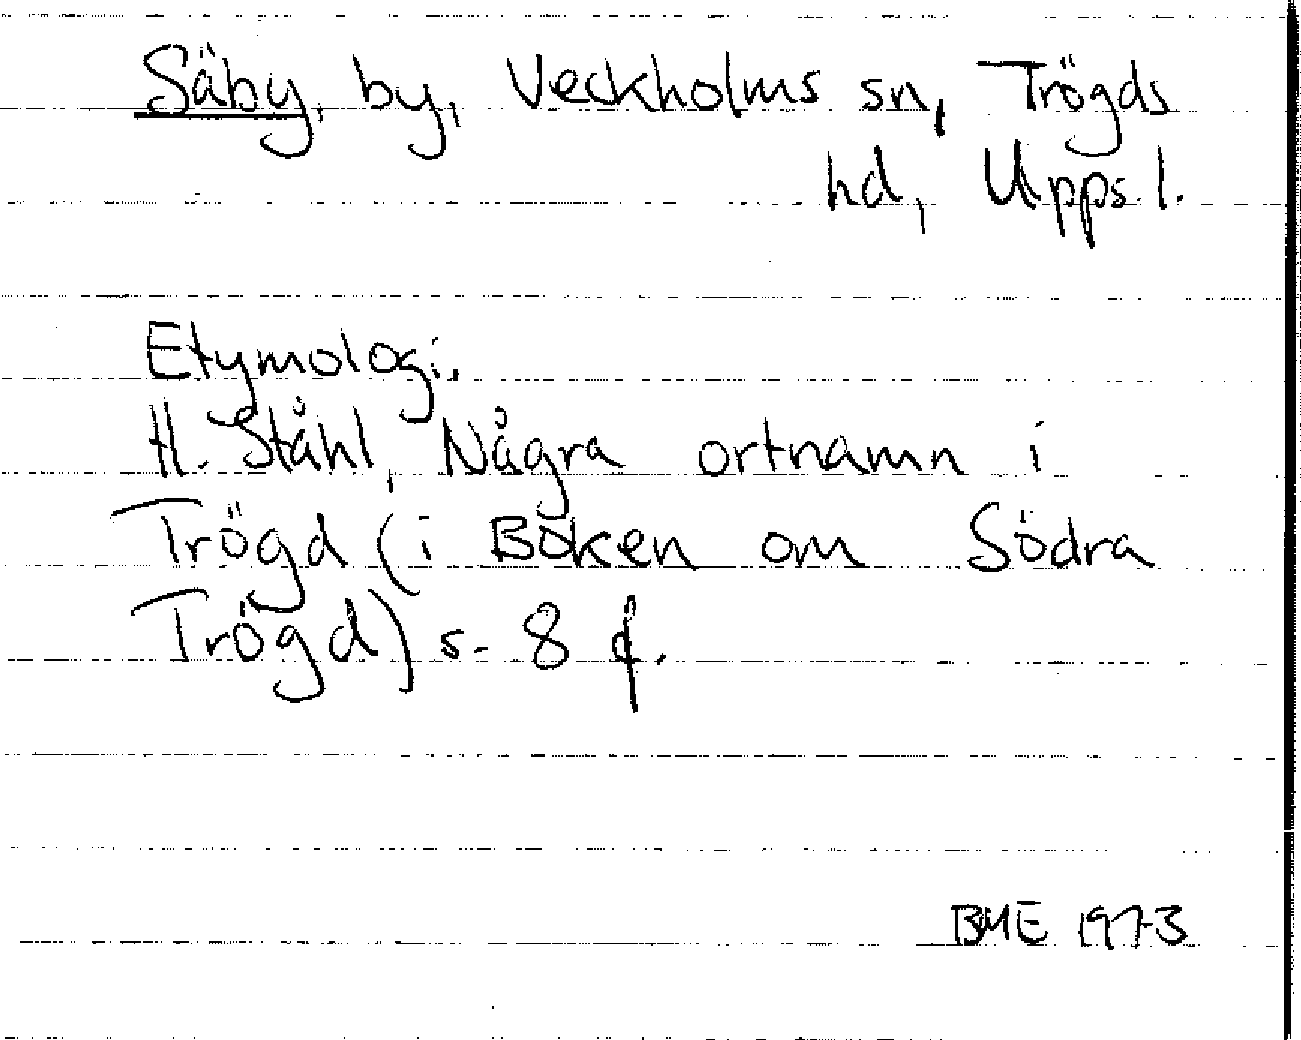 Säby, by, Veckholms sn, Trögds
hd, Upps. l.
Etymologi.
H. Ståhl, Några ortnamn i
Trögd (i Boken om Södra
Trögd) s. 8 f.
BME 1973